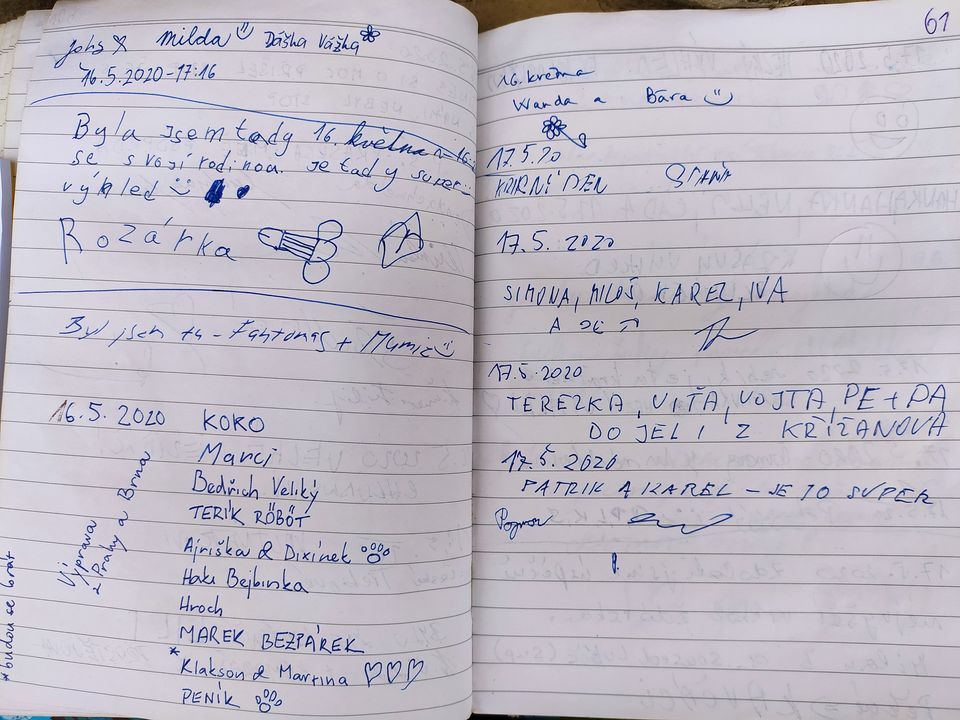 Milda Dáška Vážka
16.5.2020-17:16
Byla jsem tady 16. května
se svojí rodinou. je tady super
výhled
Rozárka
Byl jsem tu - Fantomas +
16.5.2020 KOKO
Marci
Bedřich Veliký
TERIK RÖBÖT
Ajriška & Dixínek
Haku Bejbinka
Hroch
MAREK BEZPÁREK
* Klakson & Martina
PENÍK
Výprava
z Prahy a Brna
*budou se brát
61
16. května
Wanda a Bára
17.5.20
DEN
17.5.2020
SIMONA, MILOŠ, KAREL, IVA
A
17.5.2020
TEREZKA, VIŤA, VOJTA, PE + PA
DOJELI Z KŘIŽANOVA
17.5.2020
PATRIK A KAREL - JE TO SUPER